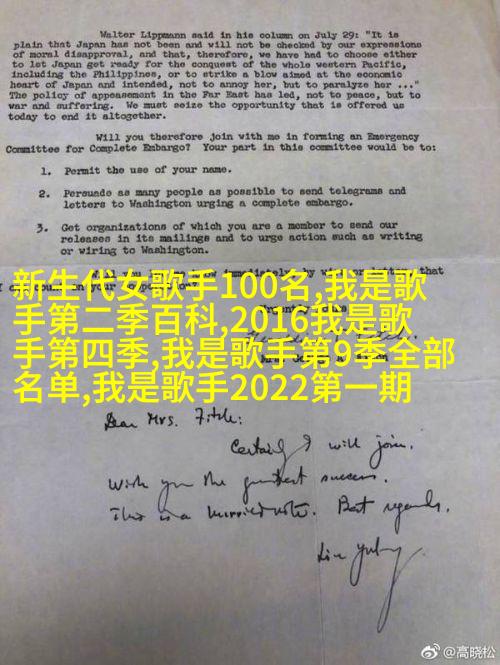 Walter Lippmann said in his column on July 29: "It is
plain that Japan has not been and will not be checked by our expressions
of moral disapproval, and that, therefore, we have had to choose either
to let Japan get ready for the conquest of the whole western Pacific,
including the Philippines, or to strike a blow aimed at the economic
heart of Japan and intended, not to annoy her, but to paralyze her ..."
The policy of appeasement in the Far East has led, not to peace, but to
war and suffering. We must seize the opportunity that is offered us
today to end it altogether.
Will you therefore join with me in forming an Emergency
Committee for Complete Embargo? Your part in this committee would be to:
1. Permit the use of your name.
2. Persuade as many people as possible to send telegrams and
letters to Washington urging a complete embargo.
3. Get organizations of which you are a member to send our
releases in its mailings and to urge action such as writing
or wiring to Washington.
that
新生代女歌手100名,我是歌
手第二季百科,2016我是歌
手第四季,我是歌手第9季全部
名单,我是歌手2022第一期
Dear Mrs. Fitch:
Certainly I will join.
Wish you the greatest success.
This is a hurried note. Best regards.
Lin Yutang
@高晓松